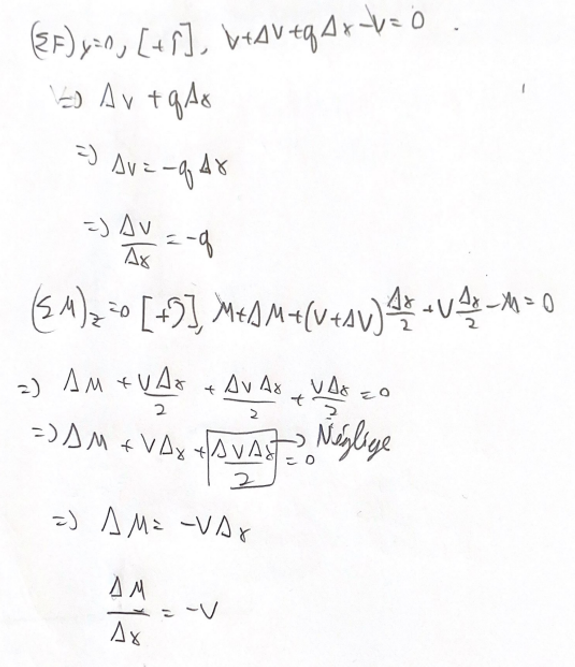 (ΣF)y=0, [+↑], V+ΔV+qΔx-V=0
=> ΔV+qΔx
=> ΔV=-qΔx
=> ΔV/Δx=-q
(ΣM)z=0 [+↺], M+ΔM+(V+ΔV)Δx/2+VΔx/2-M=0
=> ΔM+VΔx/2+ΔVΔx/2+VΔx/2=0
=> ΔM+VΔx+ΔVΔx/2=0 → Néglige
=> ΔM=-VΔx
ΔM/Δx=-V